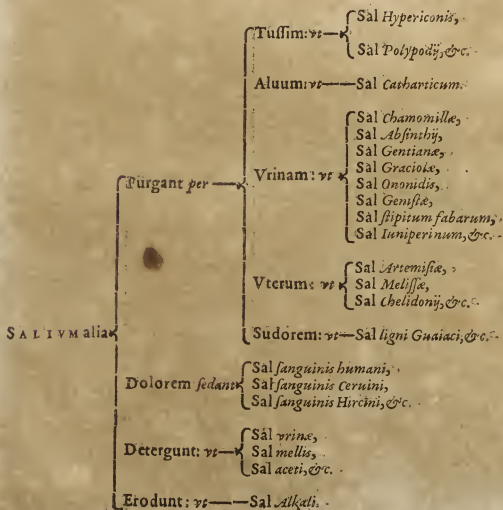 Tuſſim: vt
Sal Hypericonis,
Sal Polypodij, &c.
Aluum: vt
Sal Catharticum.
Vrinam: vt
Sal Chamomillæ,
Sal Abſinthij,
Sal Gentianæ,
Sal Graciolæ,
Sal Ononidis,
Sal Geniſtæ,
Sal ſtipitum fabarum,
Sal Iuniperinum, &c.
Purgant per
Vterum: vt
Sal Artemiſiæ,
Sal Meliſſæ,
Sal Chelidonij, &c.
SALIVM alia
Sudorem: vt Sal ligni Guaiaci, &c.
Dolorem ſedant
Sal ſanguinis humani,
Sal ſanguinis Ceruini,
Sal ſanguinis Hircini, &c.
Detergunt: vt
Sal vrinæ,
Sal mellis,
Sal aceti, &c.
Erodunt: vt Sal Alkali.